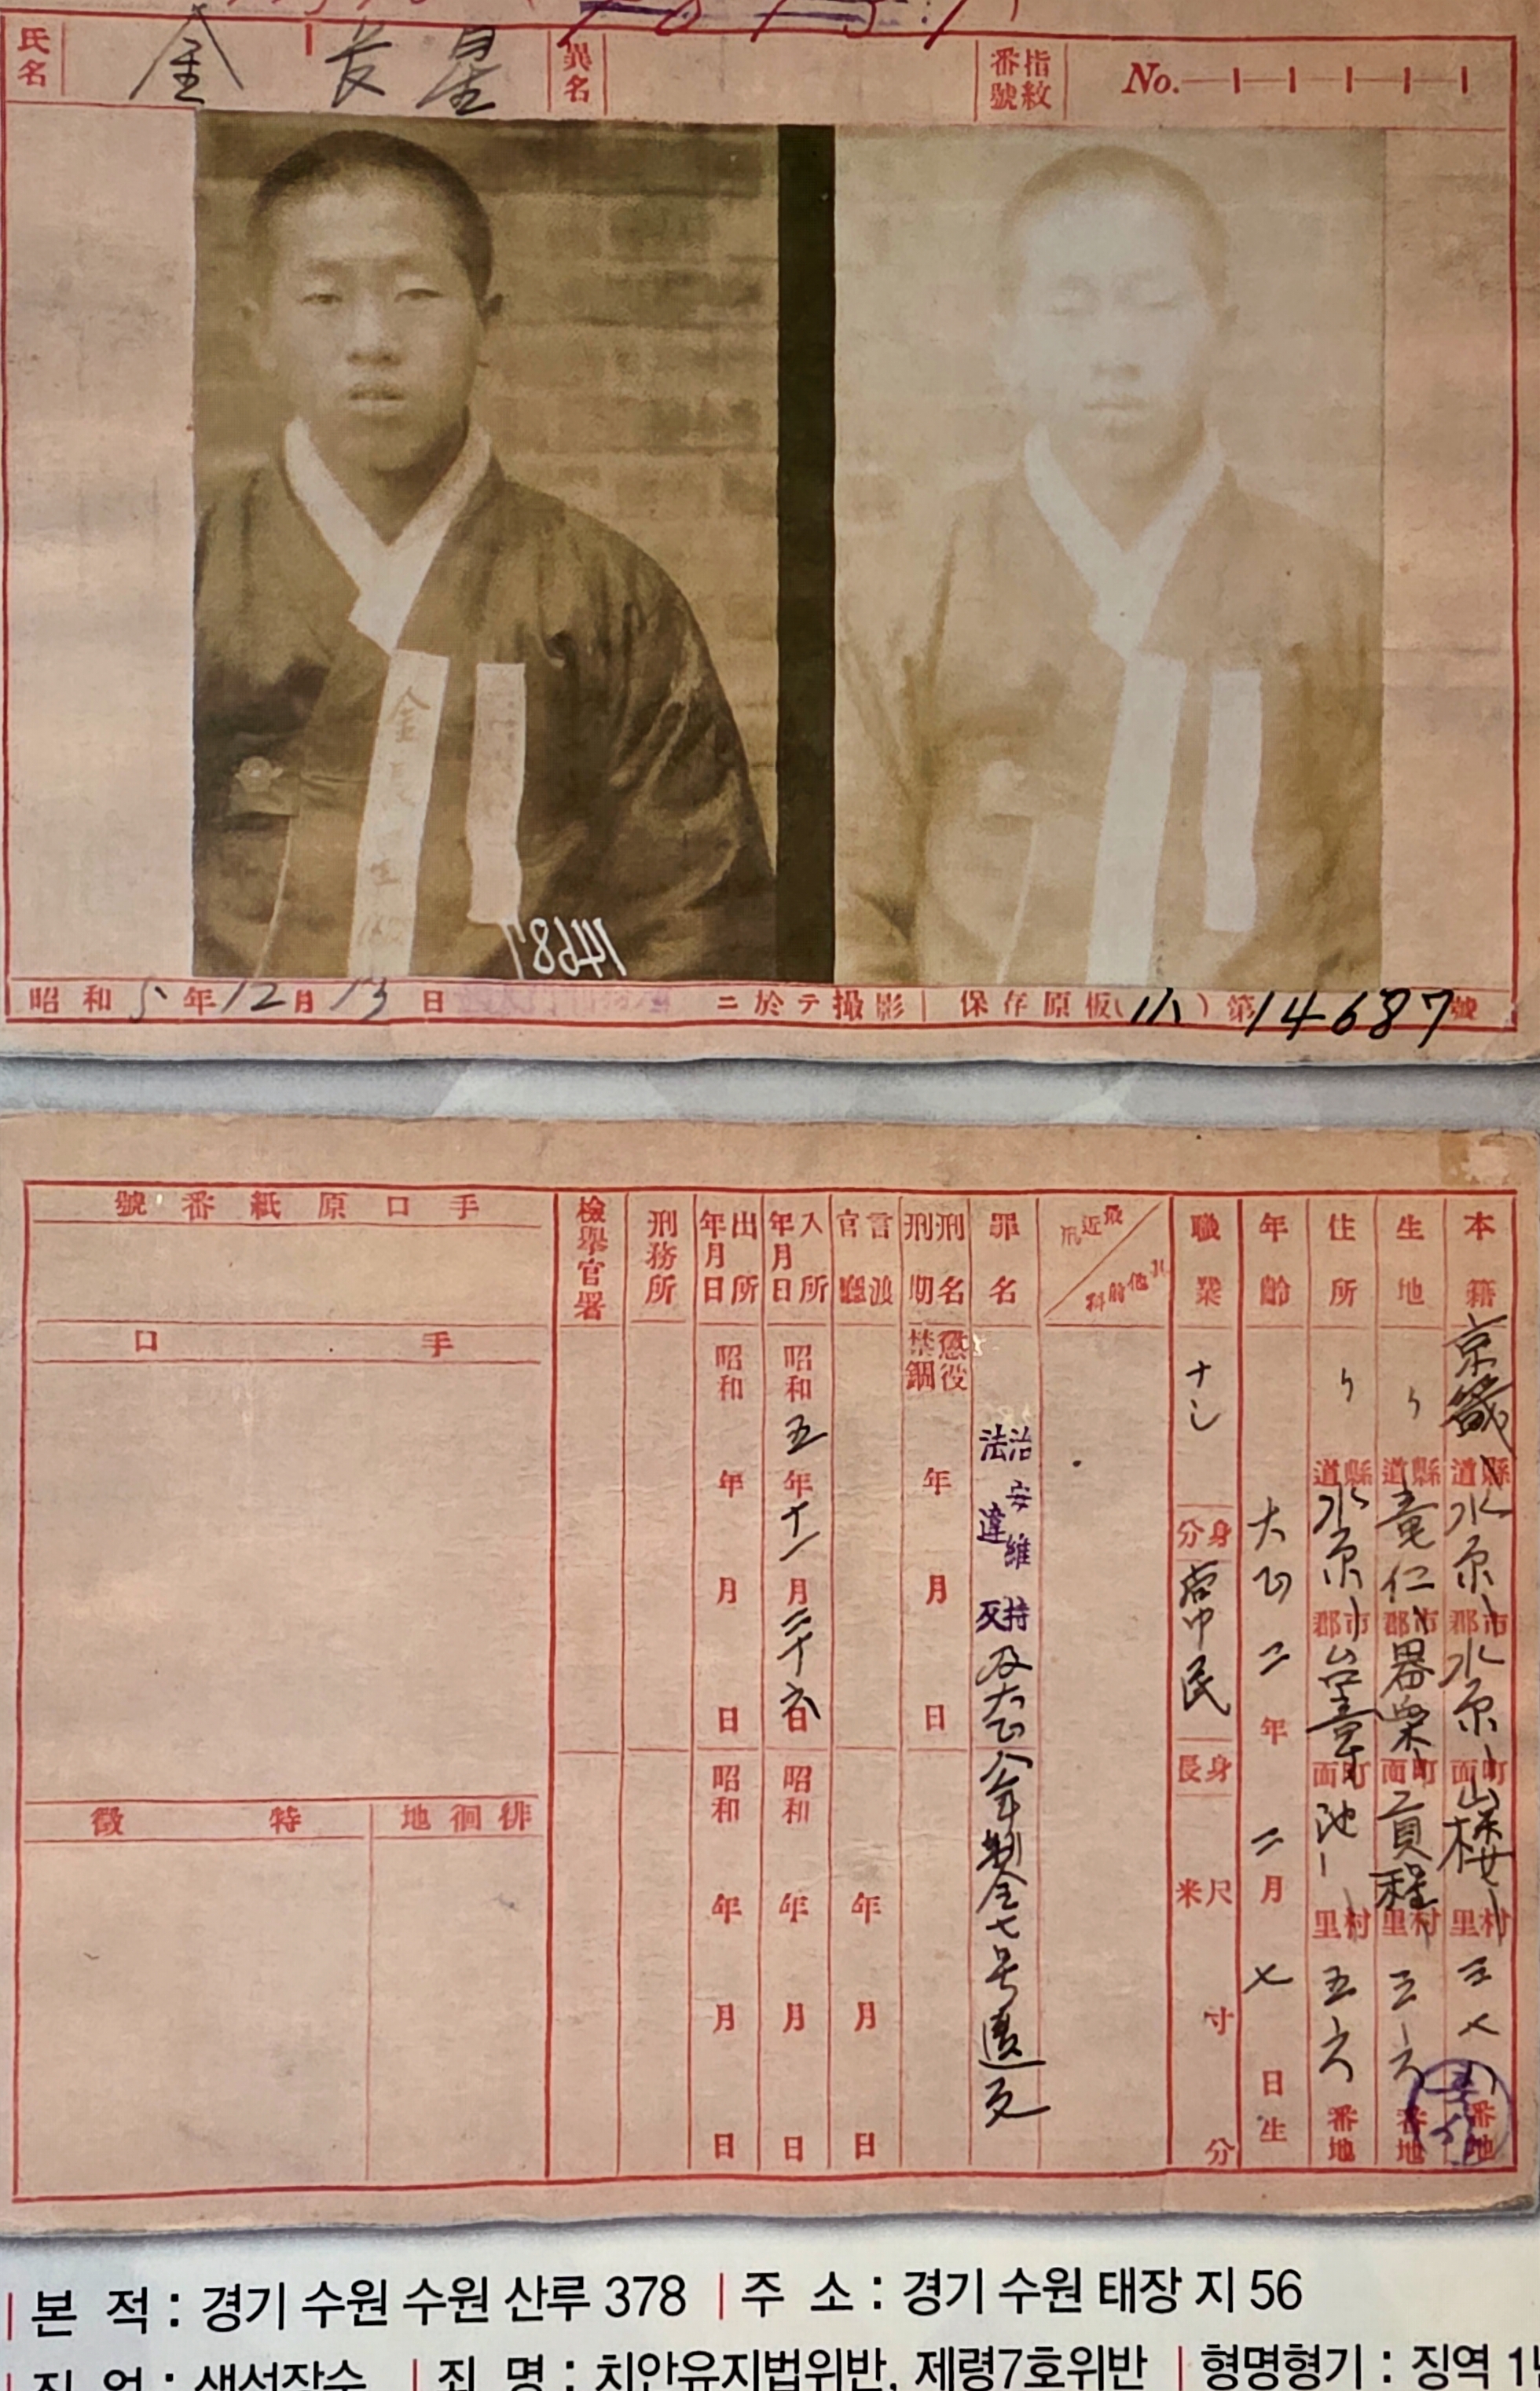 氏名 金長星 異名 指紋番號 No.
金長星
14687
昭和5年12月13日 ニ於テ撮影 保存原板(小)第14687號
本籍 京畿 道縣 水原 郡市 水原 面町 山樓 里村 三七八 番地
生地 〃 道縣 竜仁 郡市 器興 面町 貢稅 里村 三六 番地
住所 〃 道縣 水原 郡市 台章 面町 池 里村 五六 番地
年齡 大正二年二月七日生
職業 ナシ 身分 常民 身長 尺米 寸 分
最近刑 其他前科
罪名 治安維持法違反及大正八年制令七号違反
刑名刑期 懲役禁錮 年 月 日
言渡官廳 年 月 日
入所年月日 昭和五年十一月二十六日 昭和 年 月 日
出所年月日 昭和 年 月 日 昭和 年 月 日
刑務所
檢擧官署
手口原紙番號
手口
徘徊地 特徵
본 적 : 경기 수원 수원 산루 378 | 주 소 : 경기 수원 태장 지 56
직 업 : 생선장수 | 죄 명 : 치안유지법위반, 제령7호위반 | 형명형기 : 징역 1년